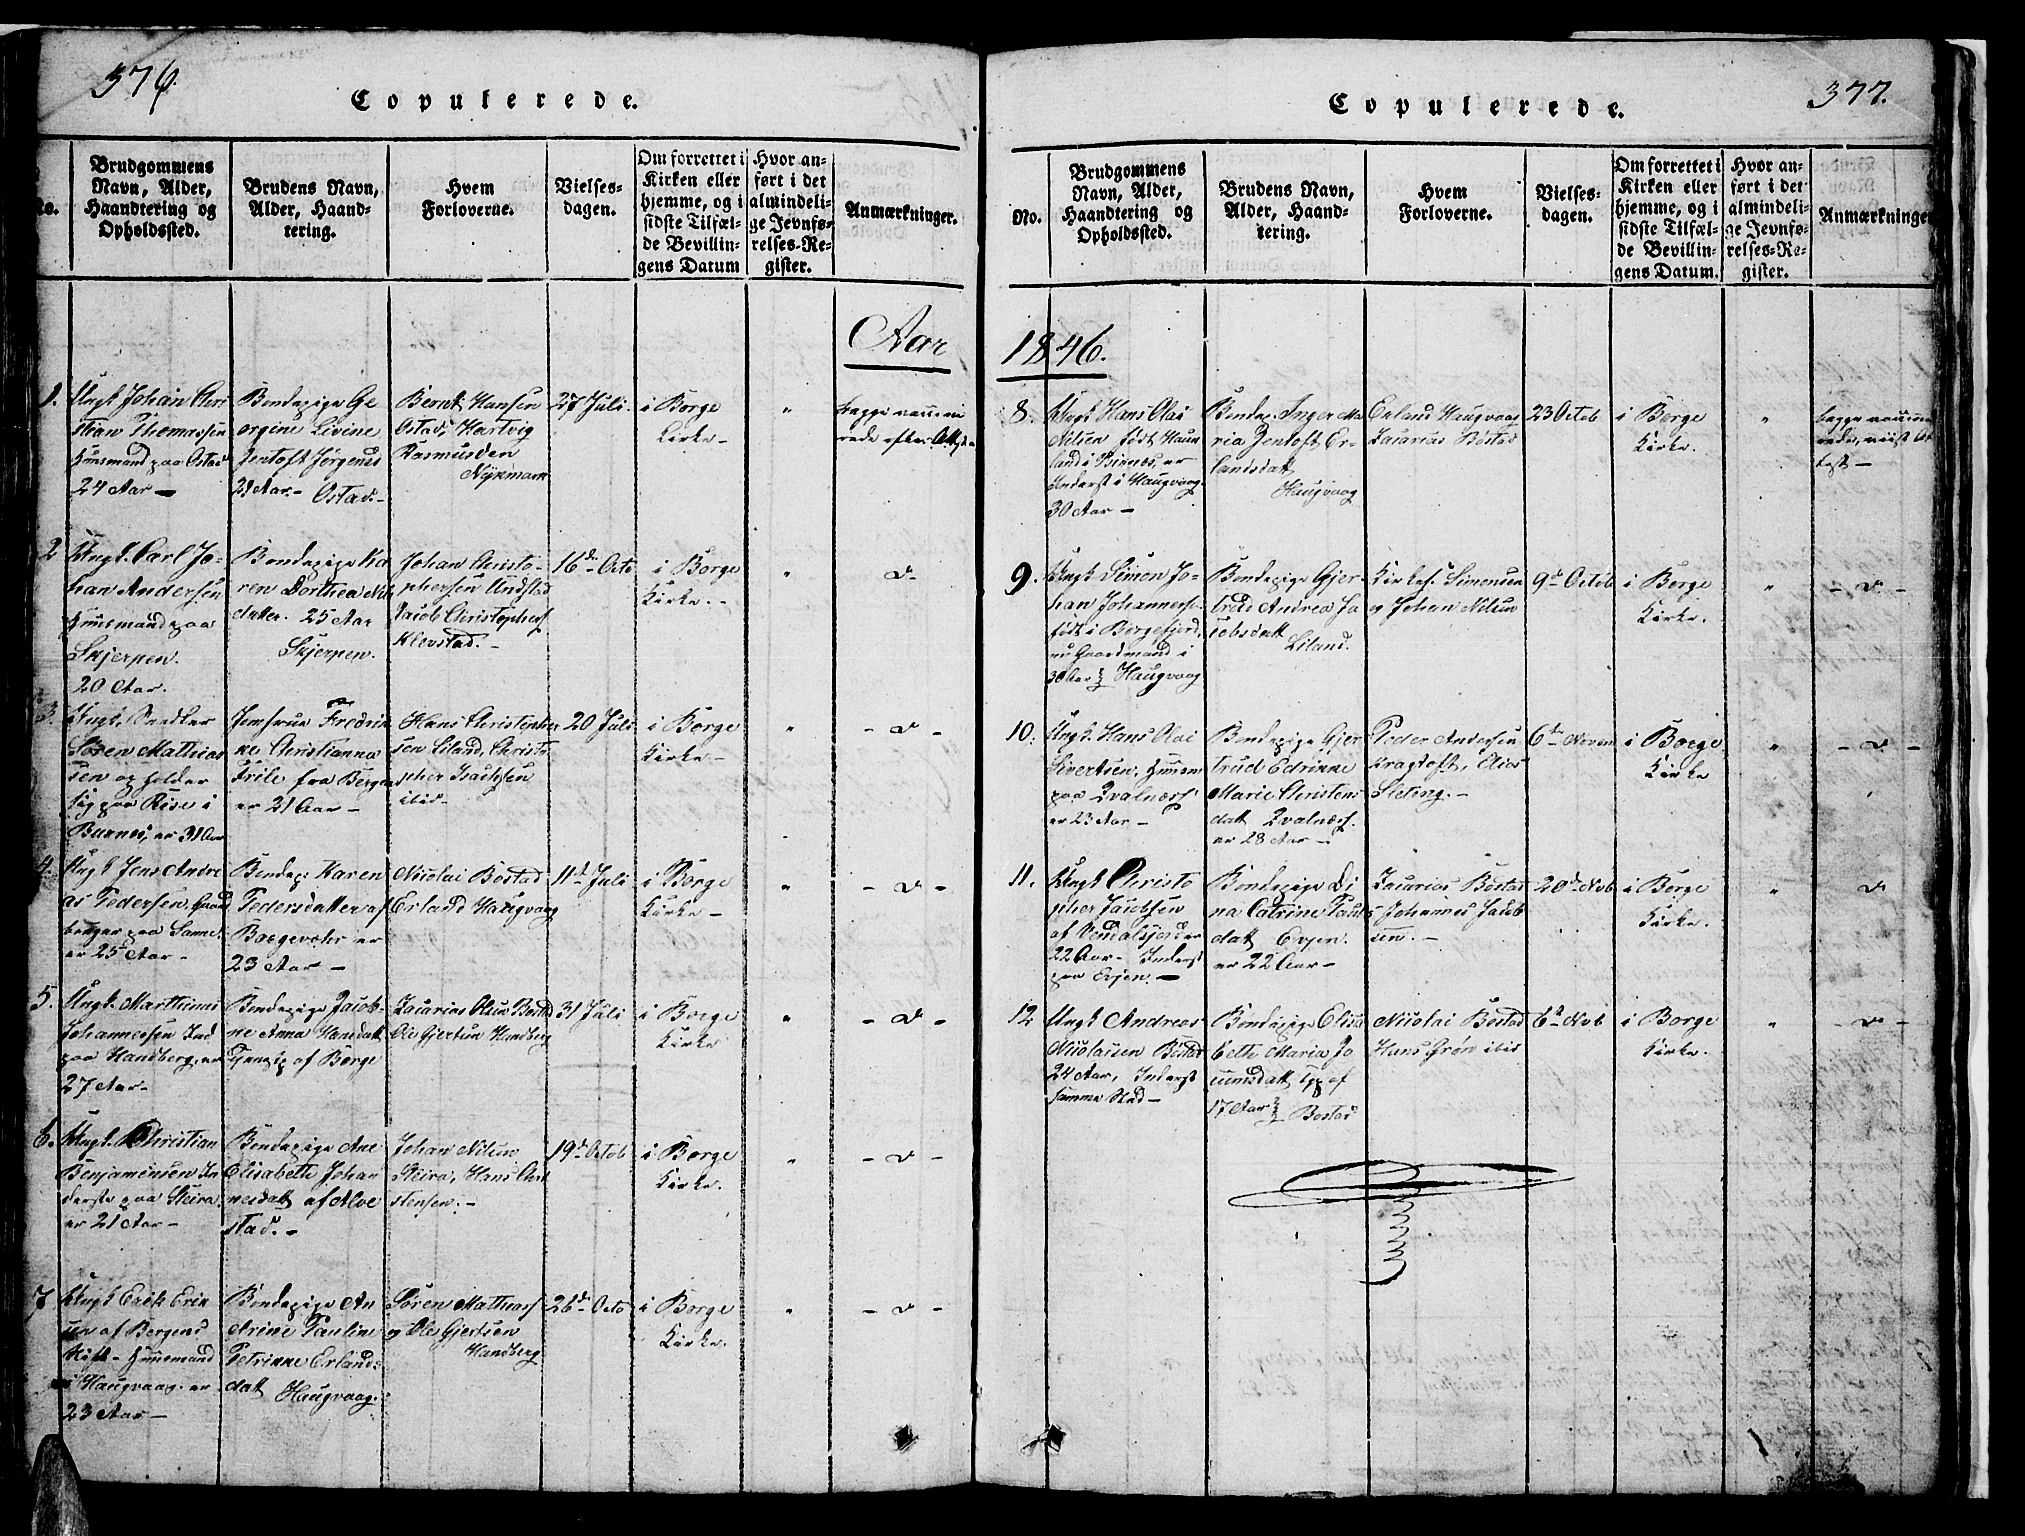 376.
Copulerede.
No.
Brudgommens
Navn, Alder,
Haandtering og
Opholdssted.
Brudens Navn,
Alder, Haand-
tering.
Hvem
Forloverne.
Vielses-
dagen.
Om forrettet i
Kirken eller
hjemme, og i
sidste Tilfæl-
de Bevillin-
gens Datum
Hvor an-
ført i det
almindeli-
ge Jevnfø-
relses-Re-
gister.
Anmærkninger.
Aar
1.
Ungk Johan Chri
stian Thomassen
Huusmand paa Ostad
24 Aar –
Bondepige Ge
orgine Livine
Jentoft Jørgensd
21 Aar – Ostad. –
Bernt Hansen
Ostad, Hartvig
Rasmussen
Nykmark
27 Juli.
i Borge
Kirke –
"
begge vaccine
rede efter Attest
2
Ungk. Carl Jo-
han Andersen
Huusmand paa
Skjerpen.
20 Aar.
Bondepige Ka
ren Dorthea Nils
datter. 25 Aar
Skjerpen.
Johan Christo-
phersen Undstad
Jacob Christophers
Klevstad. –
16de Octo
i Borge
Kirke. –
"
– v –
3.
Ungk. Snedker
Sören Mathias
sen og holder
sig paa Röse i
Buxnes, er 31 Aar
Jomfrue Fredrik
ke Christianna
Friile fra Bergen
er 21 Aar –
Hans Christopher
sen Liland, Christo
pher Isachsen
ibid. –
20 Juli
i Borge
Kirke –
"
– v –
4.
Ungk Jens Andre
as Pedersen Gaard
bruger paa Sanne
er 25 Aar –
Bondep: Karen
Pedersdatter af
Borgevær er
23 Aar –
Nicolai Bostad
Erland Haugvaag
11d Juli
i Borge
Kirke –
"
– v –
5.
Ungk. Marthinus
Johannessen Ind
paa Handberg, er
27 Aar –
Bondepige Jacob-
ne Anna Hansdatt
Tjenstp af Borge
Zacarias Olsen Bostad
Ole Gjertsen Handberg
31 Juli
i Borge
Kirke
"
– v –
6.
Ungk. Christian
Benjaminsen In
derste paa Steira
er 21 Aar –
Bondepige Ane
Elisabeth Johan
nesdatt af Alve
stad. –
Johan Nilsen
Steira, Hans Chri
stensen. –
19d Octob
i Borge
Kirke.
"
– v –
7
Ungk Erik Erik
sen af Bergens
Stift – Huusmand
i Haugvaag. er
23 Aar –
Bondepige An
drine Pauline
Petrikke Erlands
datt Haugvaag.
Sören Mathiass
og Ole Gjertsen
Handberg
26de Octo
i Borge
Kirke.
"
– v –
377.
Copulerede.
No.
Brudgommens
Navn, Alder,
Haandtering og
Opholdssted.
Brudens Navn,
Alder, Haand-
tering.
Hvem
Forloverne.
Vielses-
dagen.
Om forrettet i
Kirken eller
hjemme, og i
sidste Tilfæl-
de Bevillin-
gens Datum.
Hvor an-
ført i det
almindeli-
ge Jevnfø-
relses-Re-
gister.
Anmærkninger
1846.
8.
Ungk Hans Olai
Nilsen født Haun
land i Buxnes, er
Inderst i Haugvaag
30 Aar –
Bondep. Inger Ma
ria Zentoft Er-
landsdatt
Haugvaag
Erland Haugvaag
Zacarias Bostad
23 Octob
i Borge
Kirke.
"
begge vaccine
rede,
test –
9.
Ungk Simon Jo-
han Johanness.
født i Borgefjord,
nu Gaardmand i
30 Aar } Haugvaag
Bondepige Gjer
trud Andrea Ja
cobsdatt
Liland.
Simonsen
og Johan Nilsen
9d Octob
i Borge
Kirke.
"
– v –
10.
Ungk. Hans Olai
Sivertsen. Huusm
paa Qvalnæs
er 23 Aar –
Bondepige Gjer
trud Edrikke
Marie Christens
datt Qvalnæs.
er 28 Aar –
Peder Andersen
Kragtoft, Elias
Sleting. –
6te Novem
i Borge
Kirke
"
– v –
11.
Ungk Christo
pher Jacobsen
af Vendalsjord er
22 Aar – Inderst
paa Evjen –
Bondepige Di
na Catrine Pauls
datt Evjen.
er 22 Aar –
Zacarias Bostad
Johannes Jacob
sen. –
20de Nvb
i Borge
Kirke.
"
v
12
Ungk Andreas
Nicolaisen Bostad
24 Aar, Inderst
samme Stad –
Bondepige Elisa
beth Maria Jo
cumsdatt Tp af
17 Aar } Bostad
Nicolai Bostad
Hans Grön ibid
6te Nvb
i Borge
Kirke.
"
– v –